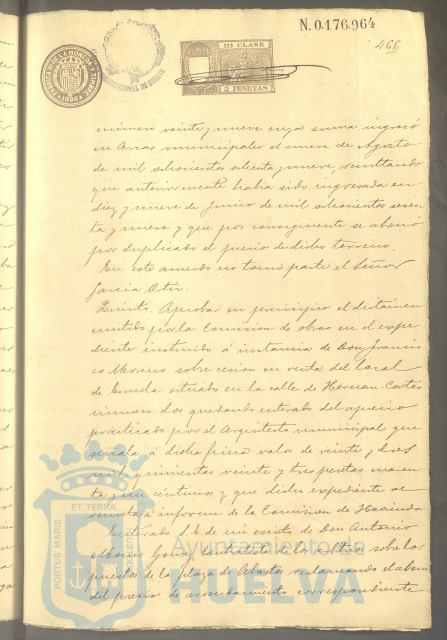 N. 0.176.964
466
11ª CLASE
2 PESETAS
número veinte y nueve cuya suma ingresó
en Arcas municipales el nueve de Agosto
de mil ochocientos ochenta y nueve, resultando
que anteriormente habia sido ingresada en
diez y nueve de Junio de mil ochocientos sesen
ta y nueve y que por consiguiente se abonó
por duplicado el precio de dicho terreno.
En este acuerdo no tomó parte el Señor
García
Quinto. Aprobar en principio el dictámen
emitido por la Comision de obras en el expe
diente instruido á instancia de Don Francis
co Moreno sobre cesion en venta del local
de Escuela situado en la calle de Hernan Cortés
número dos quedando enterado del aprecio
practicado por el Arquitecto municipal que
señala á dicha finca valor de veinte y dos
mil quinientas veinte y tres pesetas
ta y un centimos y que dicho expediente se
remita á informe de la Comision de Hacienda
Enterado S.E. de un escrito de Don Antonio
Moreno contratista de los arbitrios sobre los
puestos de la plaza de Abastos reclamando el abono
del precio de arrendamiento correspondiente
PORTUS MARIS
ET TERRÆ
Ayuntamiento de
HUELVA